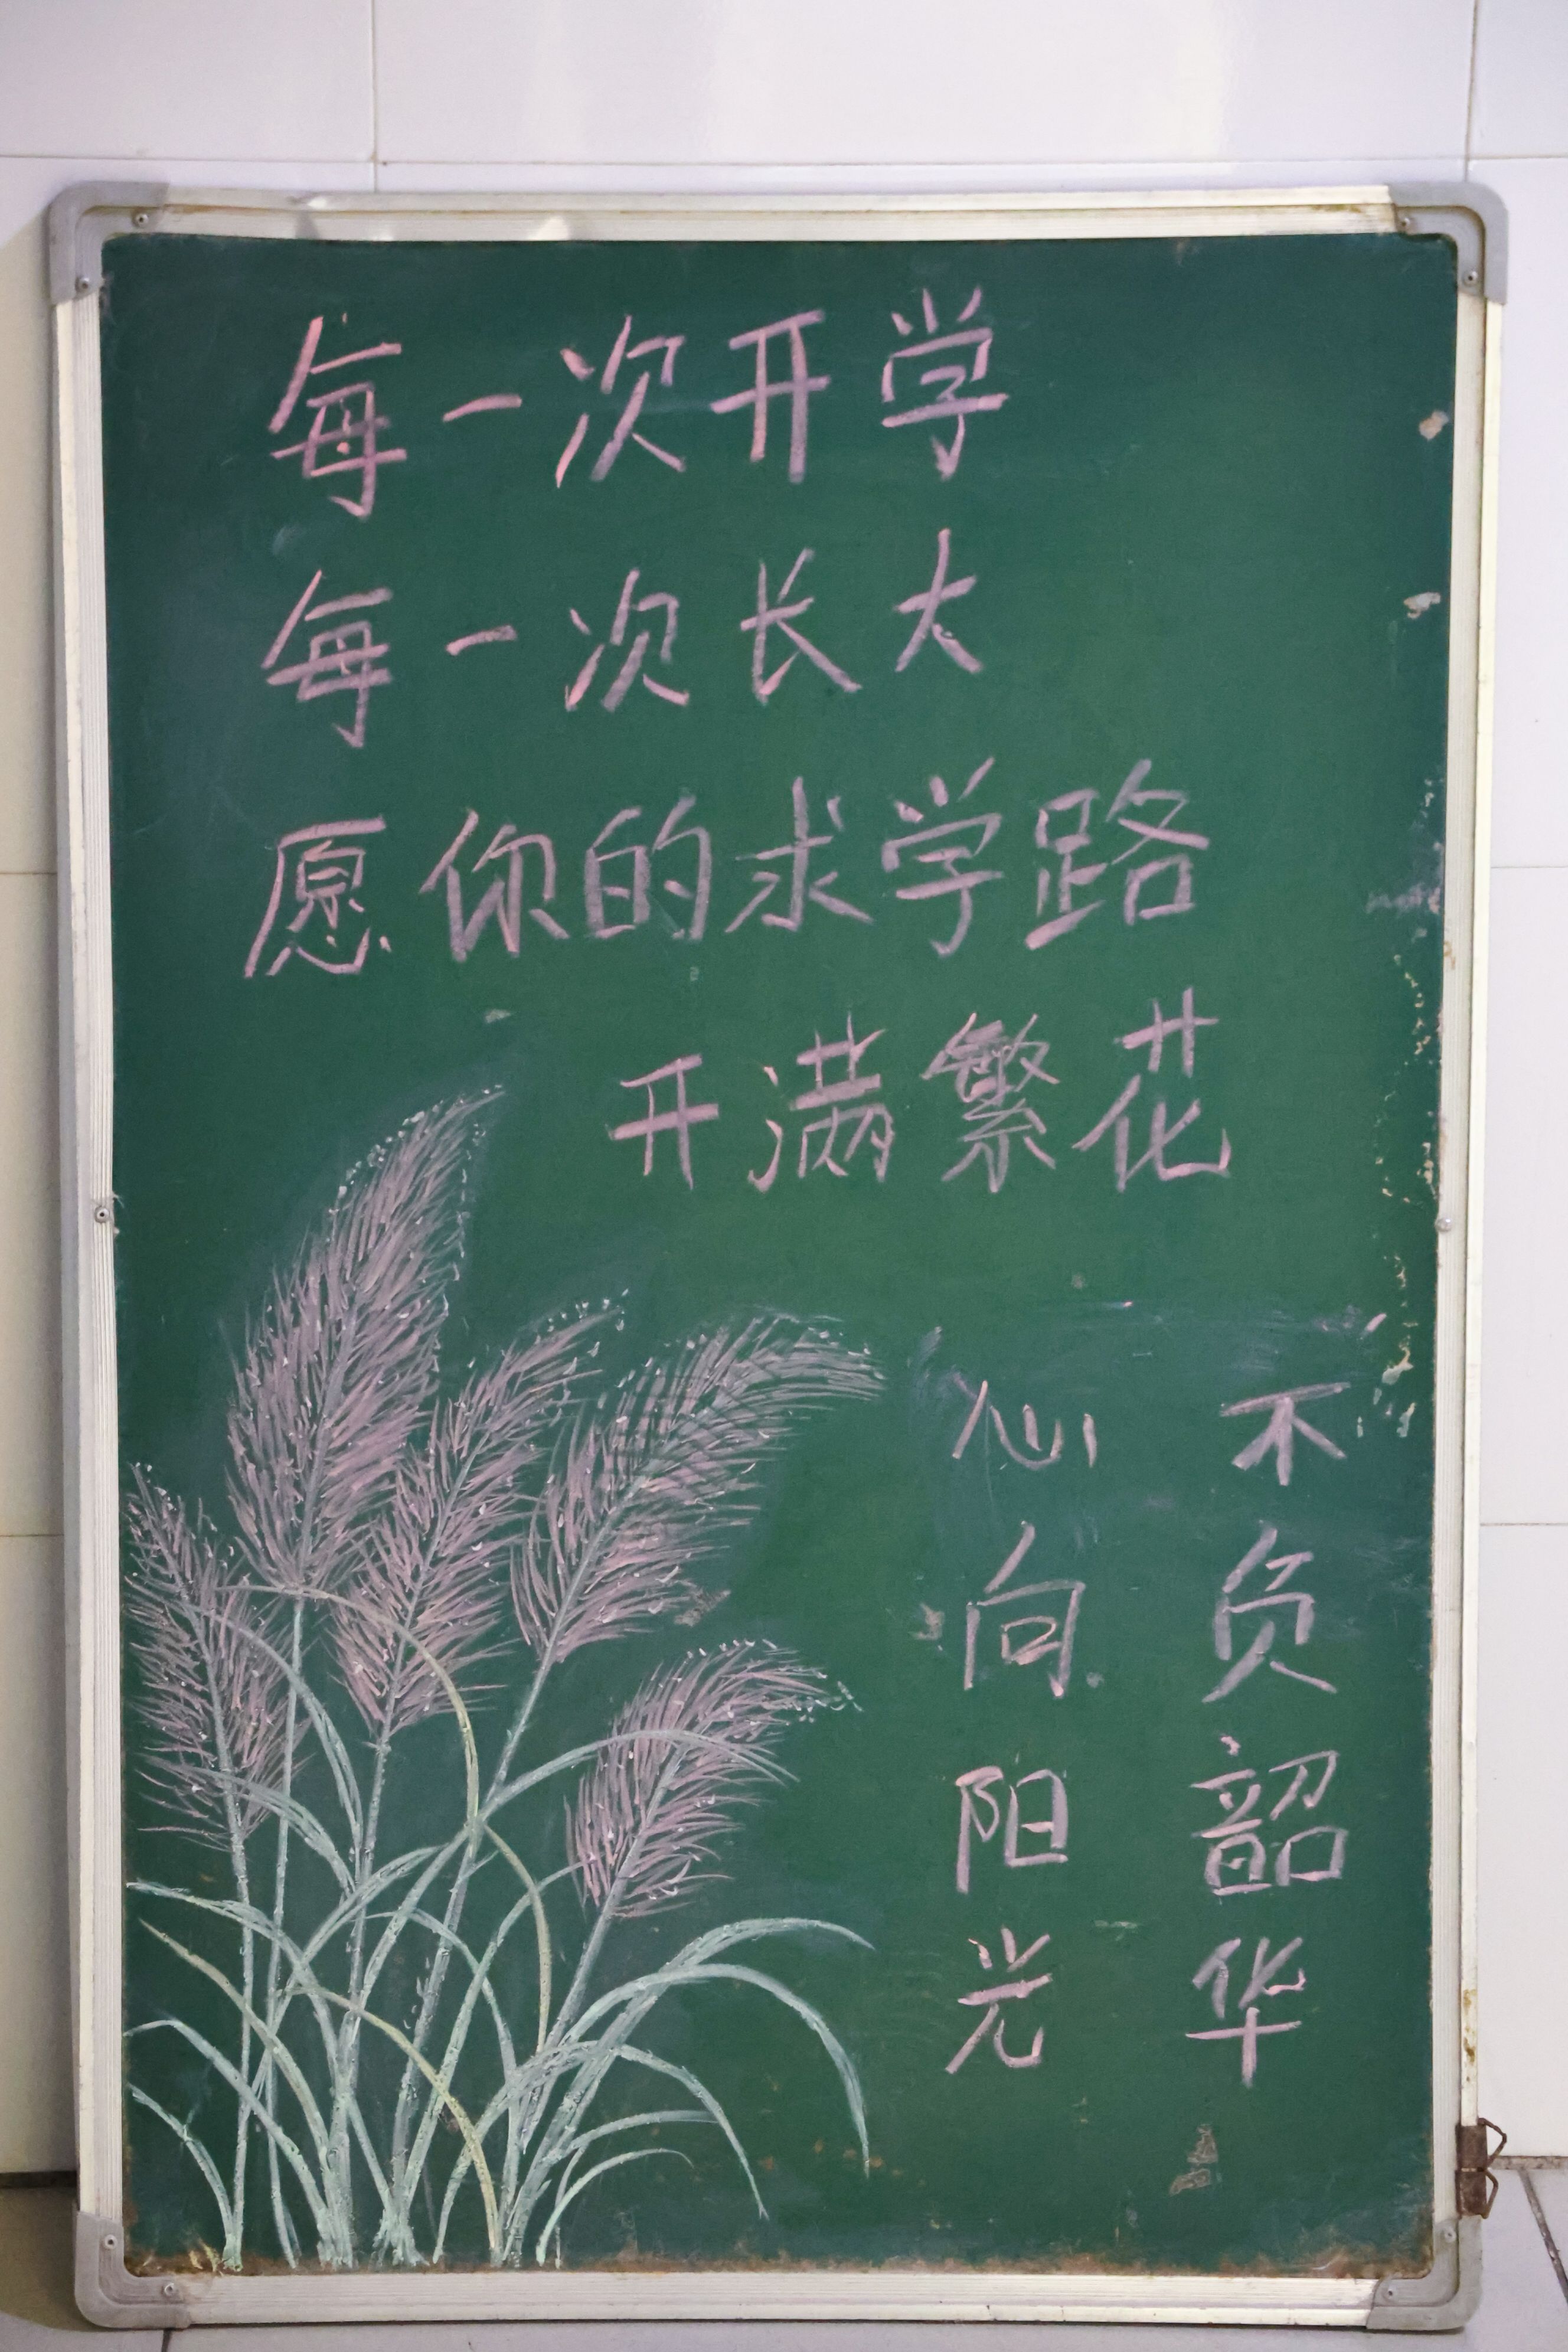 每一次开学
每一次长大
愿你的求学路
开满繁花
心向阳光
不负韶华